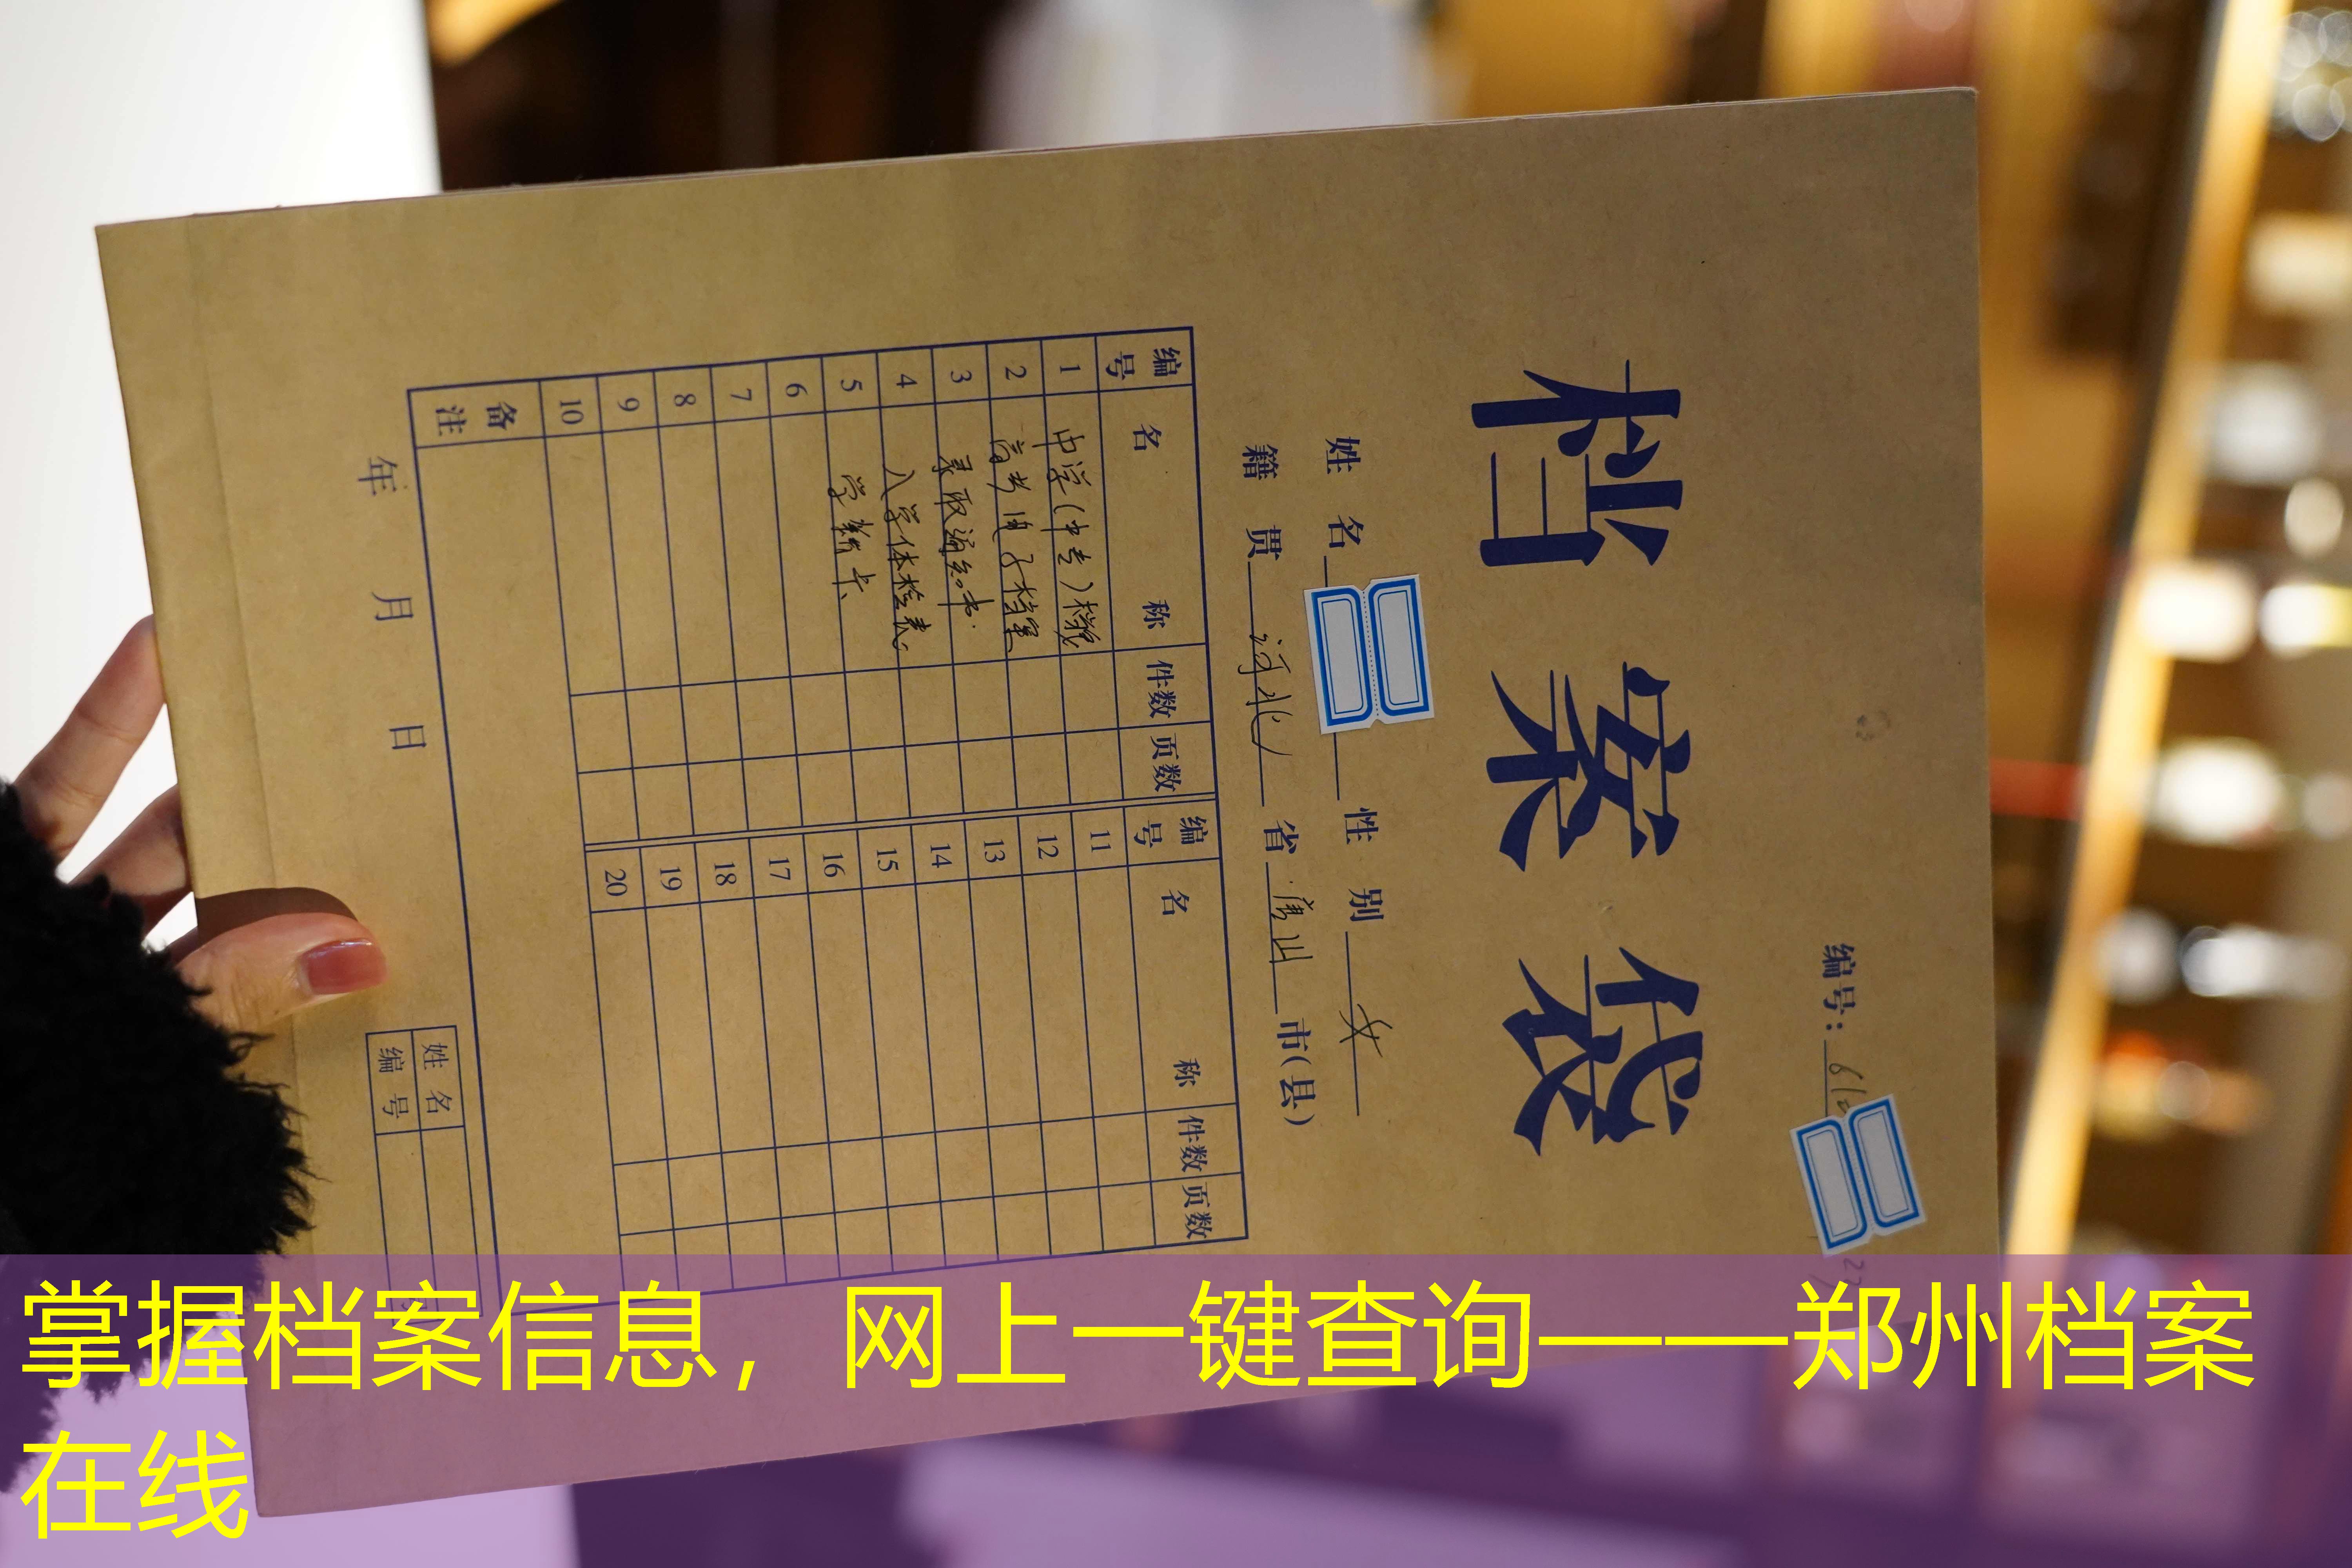 档案袋
编号：
姓名 性别 女
籍贯 河北 省 唐山 市(县)
编号 名称 件数 页数 编号 名称 件数 页数
1 中学(中专)档案 11
2 高考电子档案 12
3 录取通知书 13
4 入学体检表 14
5 学籍卡 15
6 16
7 17
8 18
9 19
10 20
备注
年 月 日
姓名
编号
掌握档案信息，网上一键查询——郑州档案
在线